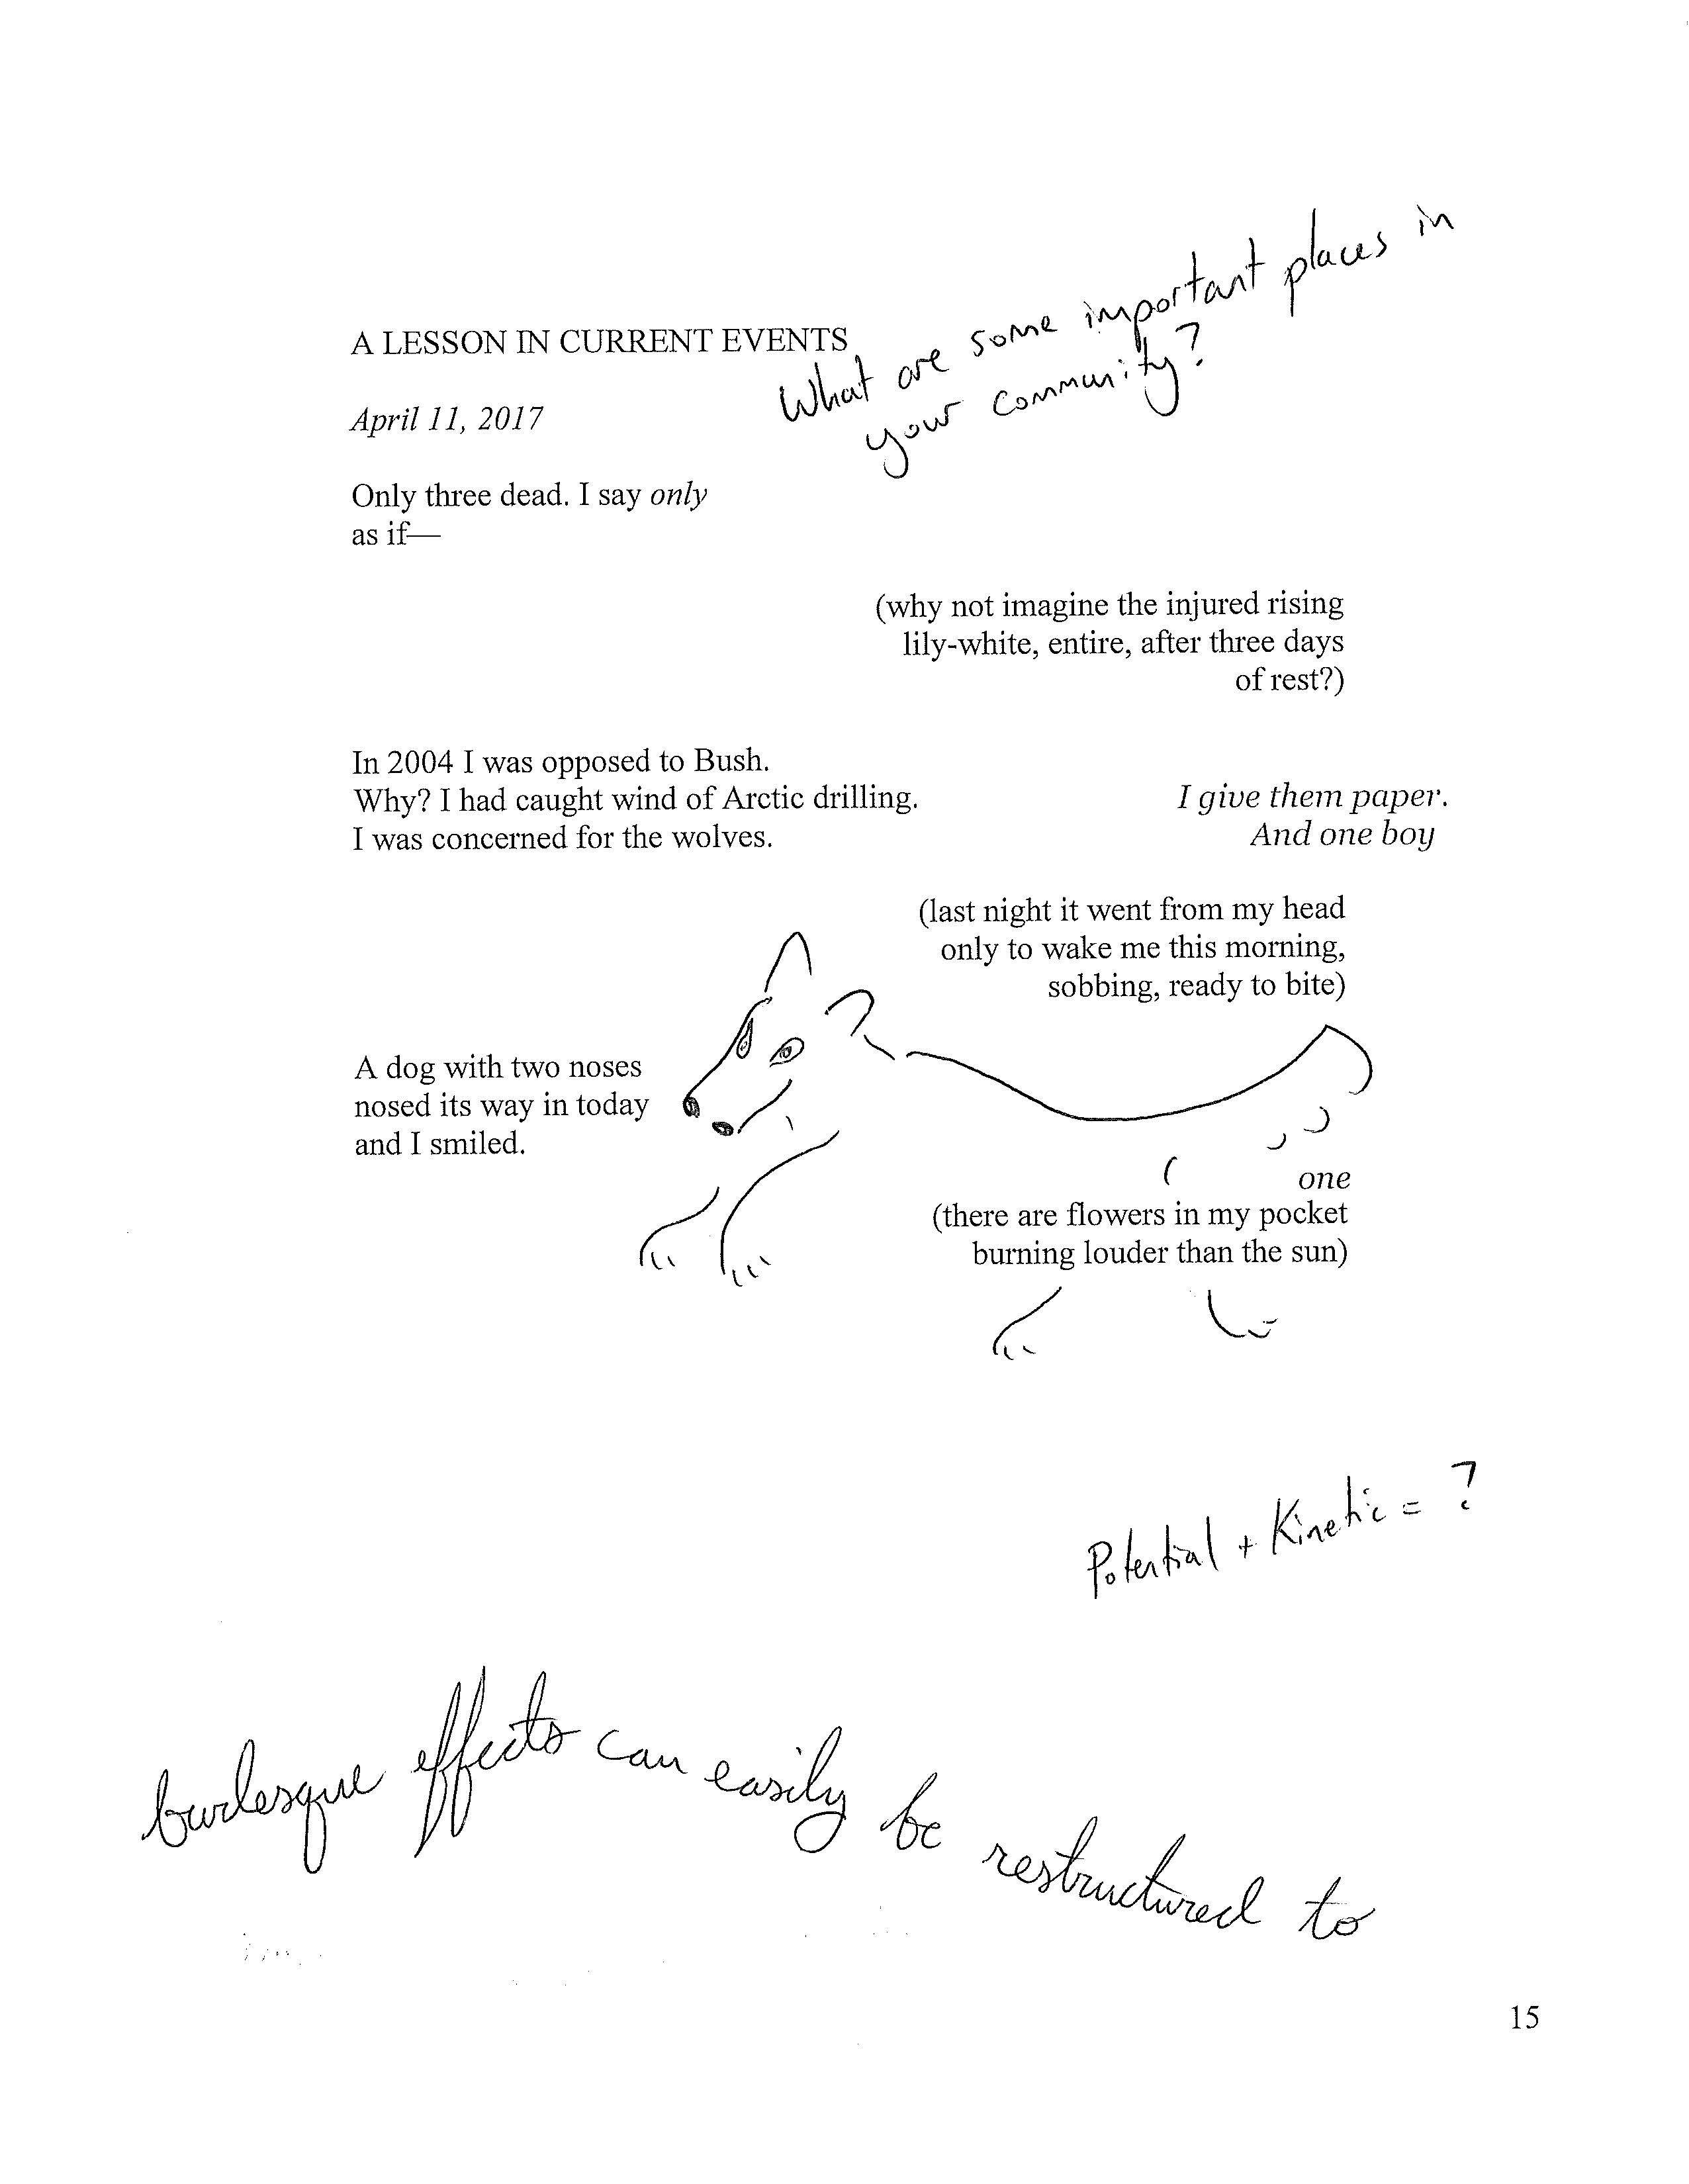 What are some important places in
your community?
A LESSON IN CURRENT EVENTS
April 11, 2017
Only three dead. I say only
as if—
(why not imagine the injured rising
lily-white, entire, after three days
of rest?)
In 2004 I was opposed to Bush.
Why? I had caught wind of Arctic drilling.
I was concerned for the wolves.
I give them paper.
And one boy
(last night it went from my head
only to wake me this morning,
sobbing, ready to bite)
A dog with two noses
nosed its way in today
and I smiled.
one
(there are flowers in my pocket
burning louder than the sun)
Potential + Kinetic = ?
burlesque effects can easily be restructured to
15